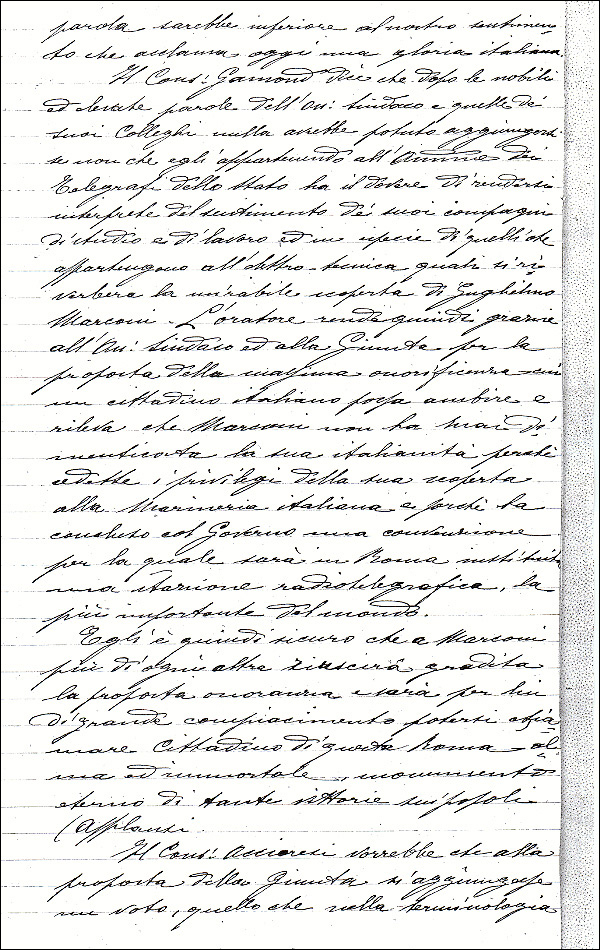 parola sarebbe inferiore al nostro sentimen-
to che acclama oggi una gloria italiana.
Il Cons: Gamond dice che dopo le nobili
ed elevate parole dell'On: Sindaco e quelle de'
suoi Colleghi nulla avrebbe potuto aggiungere
se non che egli appartenendo all' dei
Telegrafi dello Stato ha il dovere di rendersi
interprete del sentimento de' suoi compagni
di studio e di lavoro ed in specie di quelli che
appartengono all'elettro-tecnica quali si ri-
verbera la mirabile scoperta di Guglielmo
Marconi. L'oratore rende quindi grazie
all'On: Sindaco ed alla Giunta per la
proposta della massima onorificenza cui
un cittadino italiano possa ambire e
rileva che Marconi non ha mai di-
menticata la sua italianità perchè
cedette i privilegi della sua scoperta
alla Marineria italiana e perchè ha
concluso col Governo una convenzione
per la quale sarà in Roma instituita
una stazione radiotelegrafica, la
più importante del mondo.
Egli è quindi sicuro che a Marconi
più di ogni altra riuscirà gradita
la proposta onoranza e sarà per lui
di grande compiacimento potersi chia-
mare Cittadino di questa Roma al-
ma ed immortale, monumento
eterno di tante vittorie sui popoli
(Applausi.
Il Cons: Acciaresi vorrebbe che alla
proposta della Giunta si aggiungesse
un voto, quello che nella terminologia